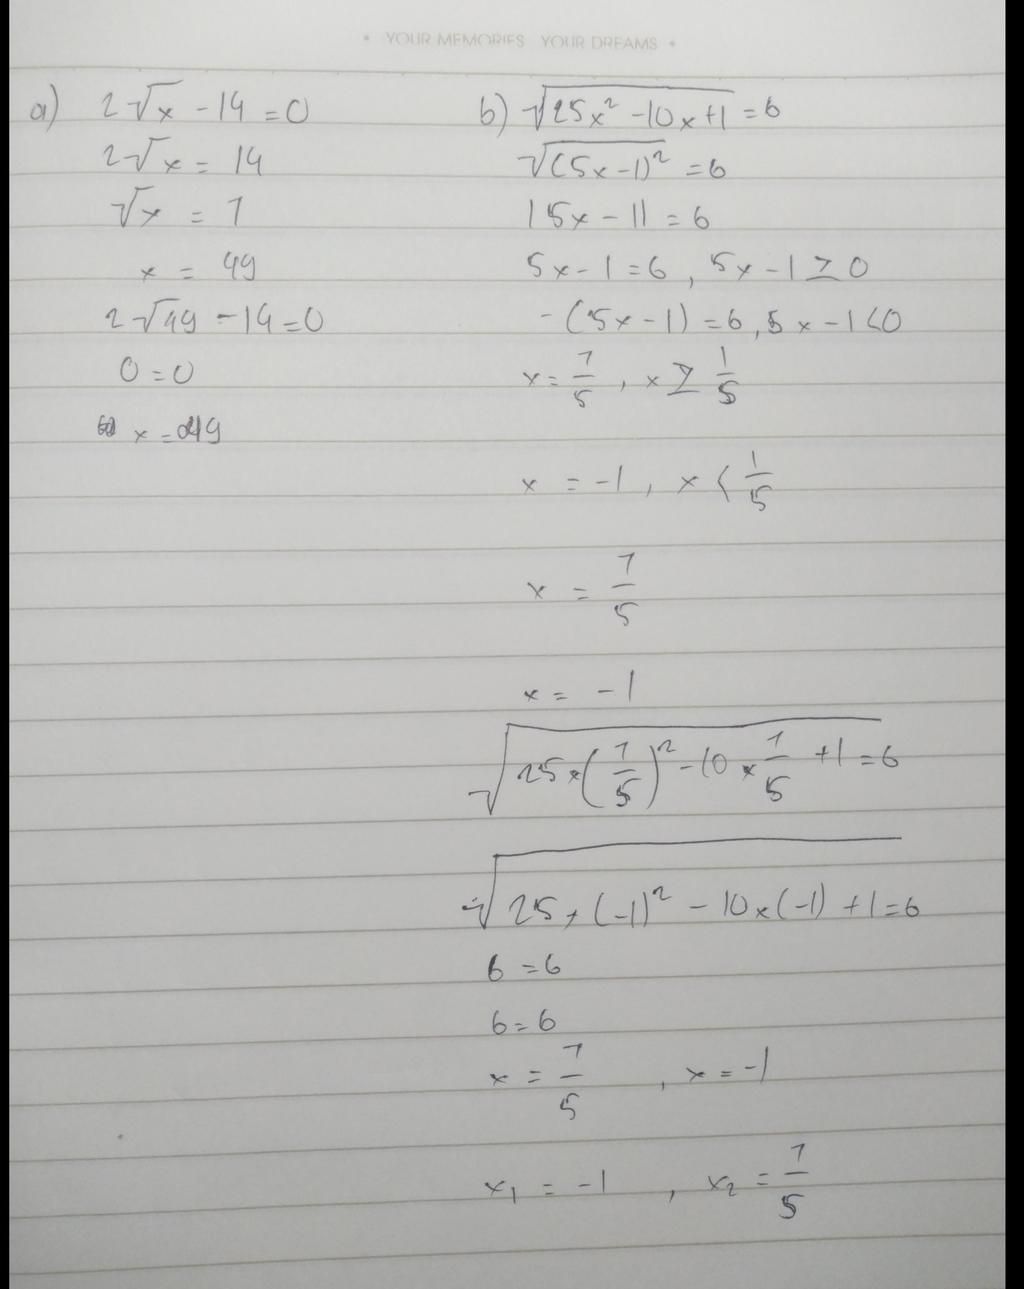 • YOUR MEMORIES YOUR DREAMS •
a) 2√x - 14 = 0
2√x = 14
√x = 7
x = 49
2√49 - 14 = 0
0 = 0
x = 49
b) √(25x² - 10x + 1) = 6
√((5x - 1)²) = 6
|5x - 1| = 6
5x - 1 = 6, 5x - 1 ≥ 0
-(5x - 1) = 6, 5x - 1 < 0
x = 7/5, x ≥ 1/5
x = -1, x < 1/5
x = 7/5
x = -1
√(25 × (7/5)² - 10 × 7/5 + 1) = 6
√(25 × (-1)² - 10 × (-1) + 1) = 6
6 = 6
6 = 6
x = 7/5, x = -1
x₁ = -1, x₂ = 7/5